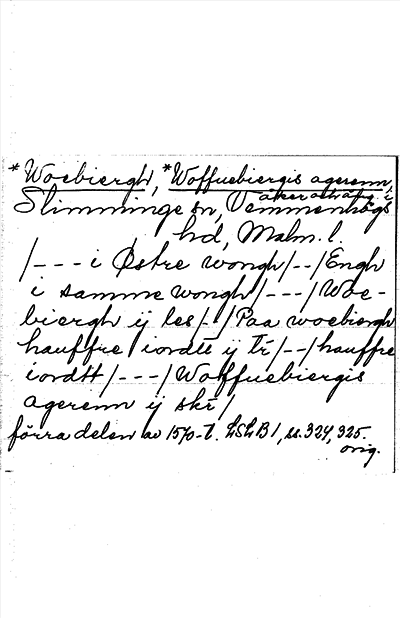 *Woebiergh, *Woffuebiergis agerenn,
åkeraslätt i
Slimminge sn, Vemmenhögs
hd, Malm. l.
/--- i Østre wongh /--/ Engh
i samme wongh /---/ Woe-
biergh ij les /--/ Paa woebiergh
hauffre iordtt ij Tr /--/ hauffre
iordtt /---/ Woffuebiergis
agerenn ij skr /
förra delen av 1570-t. LSLB 1, ss. 324, 325.
orig.